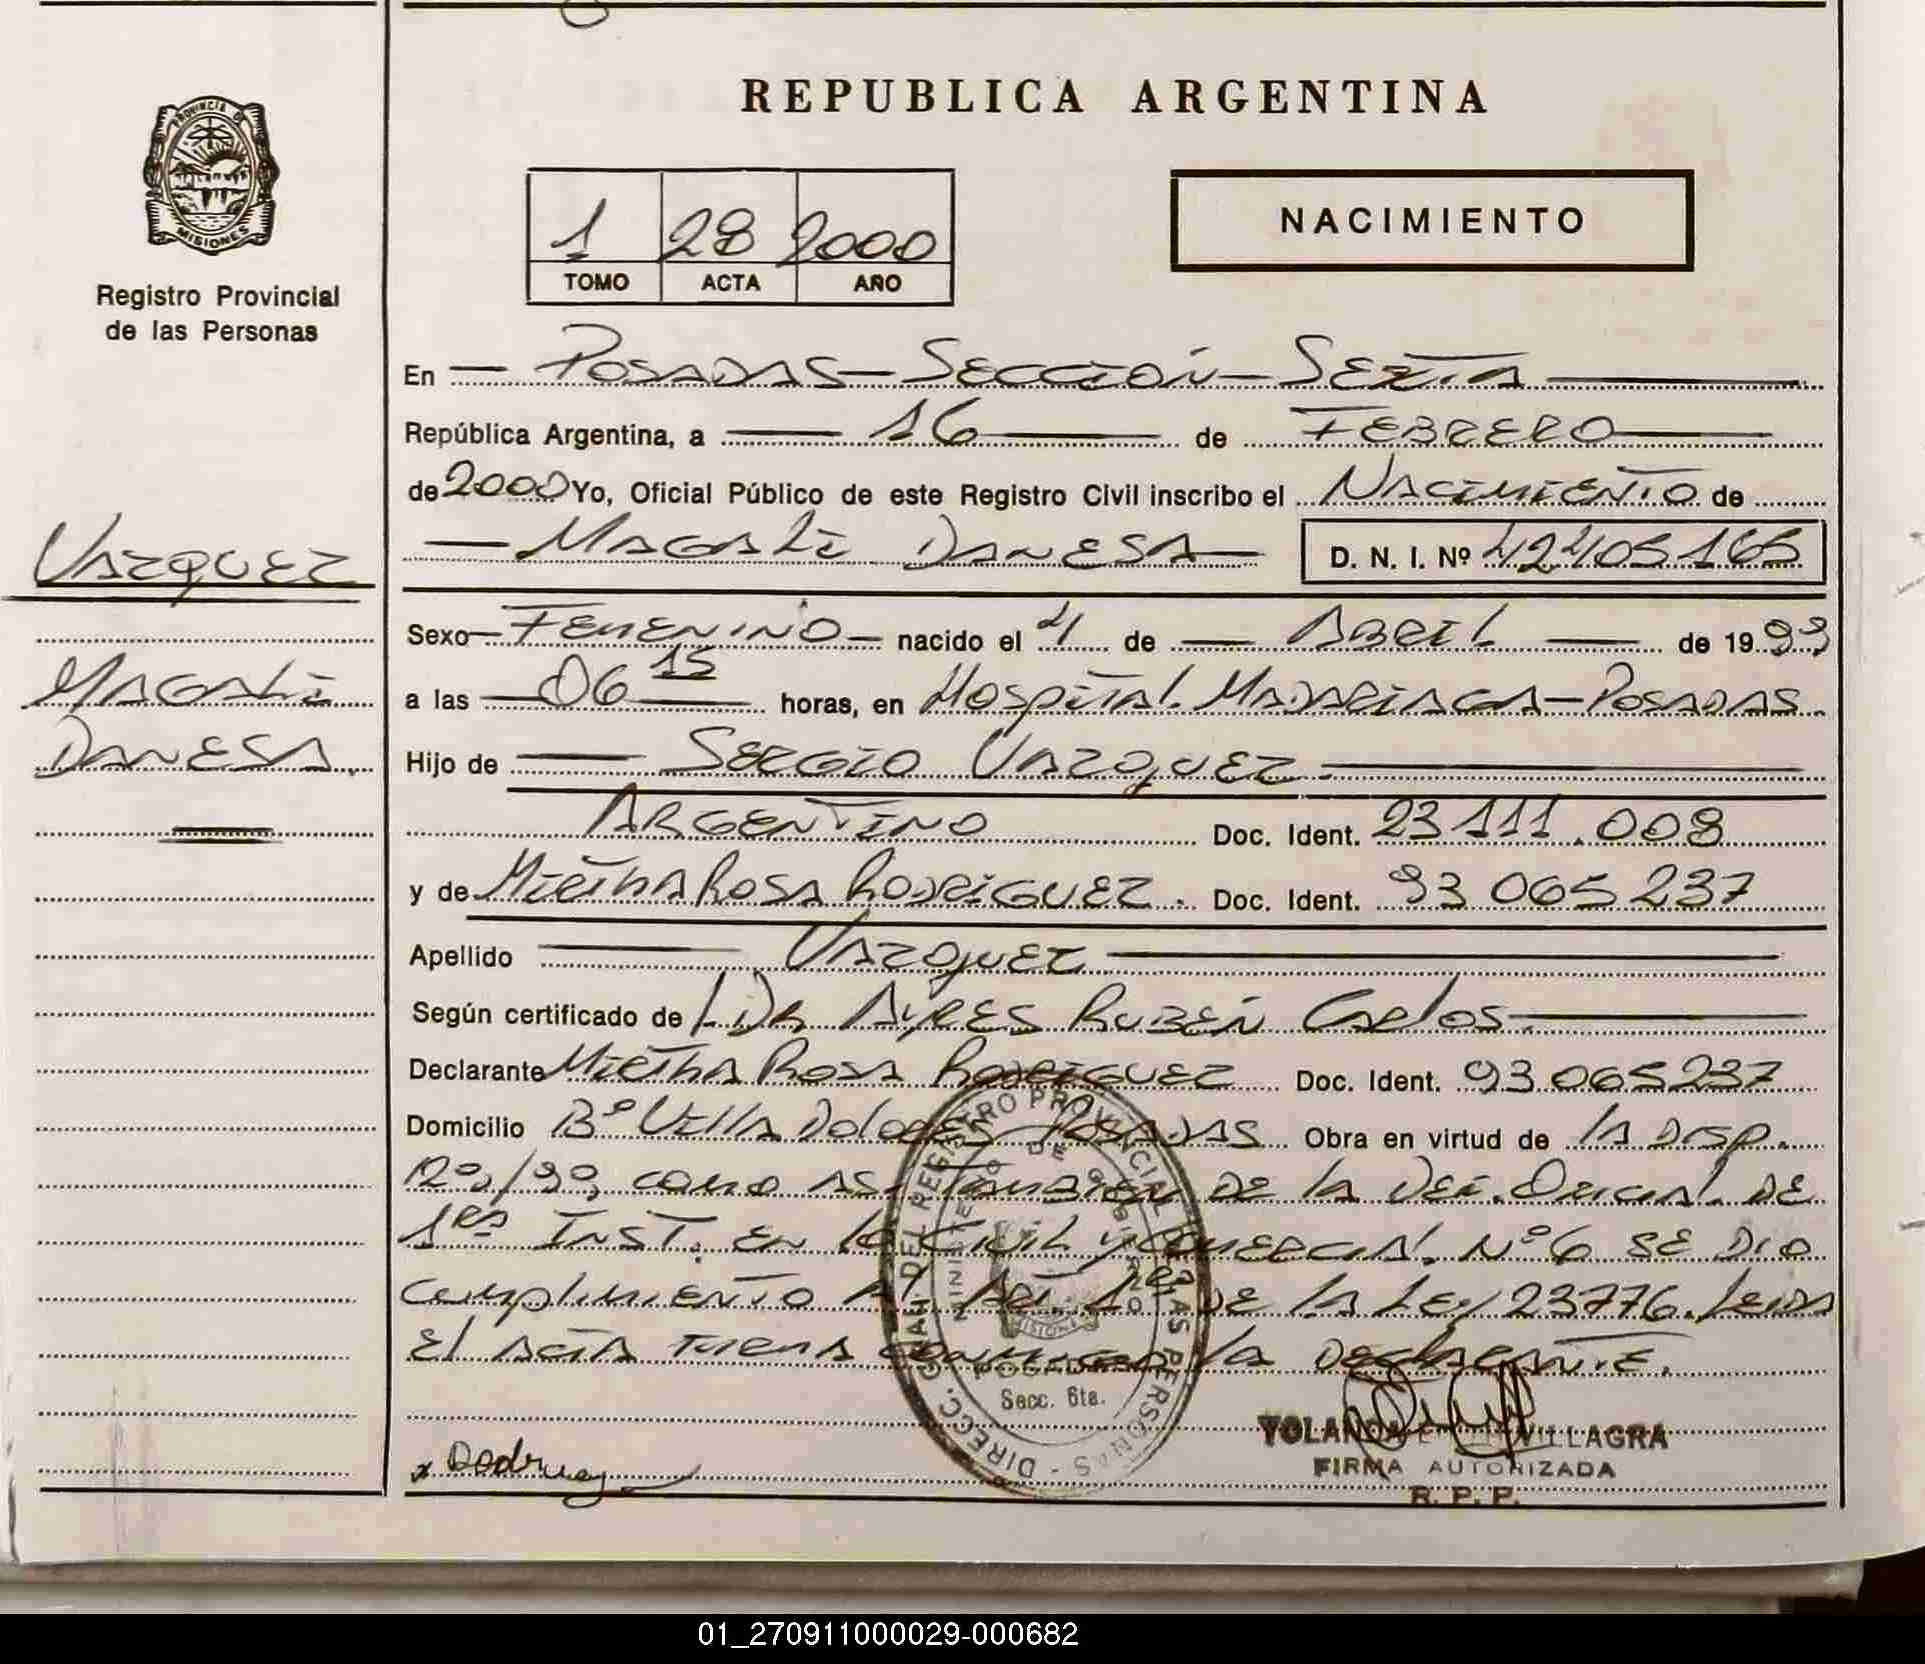 REPUBLICA ARGENTINA
PROVINCIA DE
MISIONES
Registro Provincial
de las Personas
1 28 2000
TOMO ACTA AÑO
NACIMIENTO
En POSADAS - SECCIÓN - SEXTA
República Argentina, a 16 de FEBRERO
de 2000 Yo, Oficial Público de este Registro Civil inscribo el NACIMIENTO de
MAGALI DANESA D. N. I. Nº 42405165
VAZQUEZ
MAGALI
DANESA.
Sexo FEMENINO nacido el 4 de ABRIL de 1999
a las 06 15 horas, en Hospital MADARIAGA - POSADAS.
Hijo de SERGIO VAZQUEZ.
ARGENTINO Doc. Ident. 23111.008
y de MIRTHA ROSA RODRIGUEZ. Doc. Ident. 93 065 237
Apellido VAZQUEZ
Según certificado de AYRES RUBÉN Carlos.
Declarante MIRTHA ROSA RODRIGUEZ Doc. Ident. 93 065237
Domicilio Bº VILLA DOLORES POSADAS Obra en virtud de la DISP.
como ASI TAMBIEN DE la DE
INST. EN lo CIVIL y COMERCIAL. Nº6 SE DIO
cumplimiento Al ART. 1º DE LA LEY 23776. LEIDA
El ACTA FIRMA CONMIGO la DECLARANTE.
DIRECC. GRAL DEL REGISTRO PROVINCIAL DE LAS PERSONAS
MINISTERIO DE GOBIERNO
MISIONES
POSADAS
Secc. 6ta.
x Rodriguez
YOLANDA VILLAGRA
FIRMA AUTORIZADA
R. P. P.
01_270911000029-000682